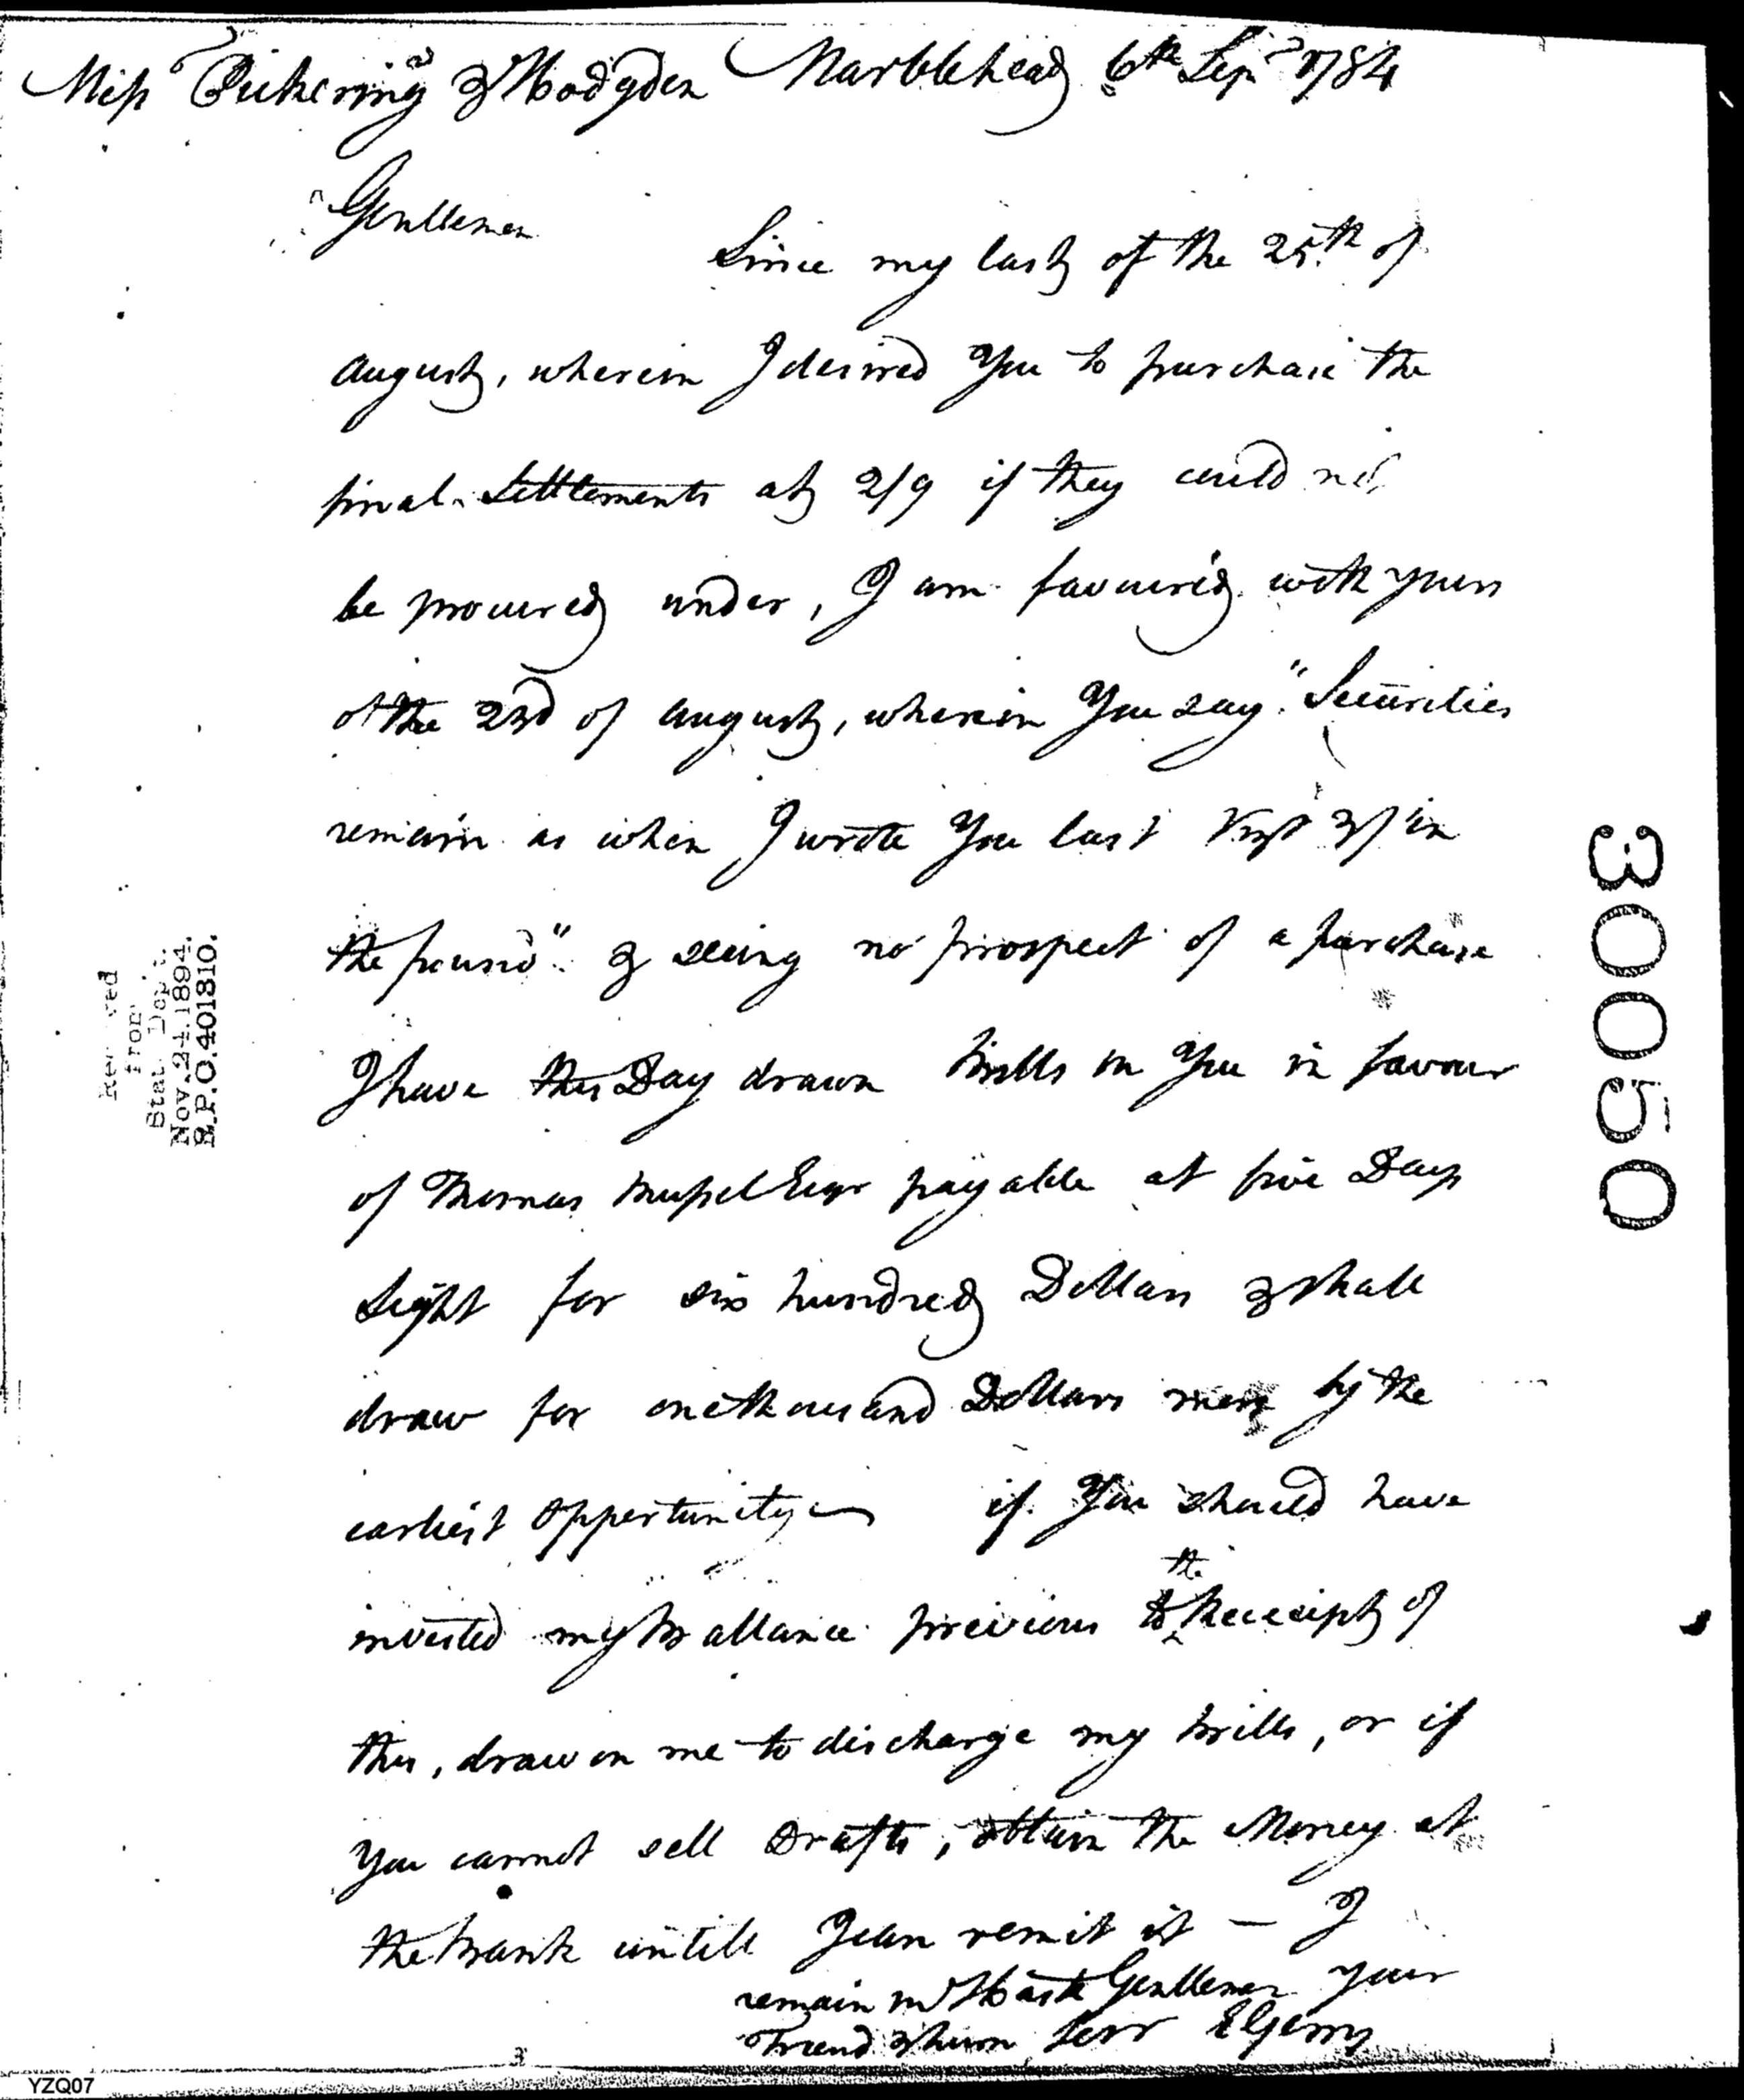 Mess Pickering & Hodgdon Marblehead 6th Sepr 1784
Gentlemen
Since my last of the 25th of
august, wherein I desired You to purchase the
final Settlements at 2/9 if they could not
be procured under, I am favoured with yours
of the 23d of august, wherein You say "Securities
remain as when I wrote You last 3/ in
the pound" & seeing no prospect of a purchase
I have this Day drawn bills on You in favour
of Thomas Russel Esqr payable at five Days
Sight for six hundred Dollars & shall
draw for one thousand Dollars more by the
earliest Opportunity — if You should have
the
invested my Ballance previous to Receipt of
this, draw on me to discharge my bills, or if
You cannot sell Drafts, obtain the Money at
the bank untill I can remit it — I
remain in Haste Gentlemen your
Friend & hum Serv E Gerry
Stat. Dep't.
Nov. 24. 1894.
R.P.O. 401810.
30050
3
YZQ07